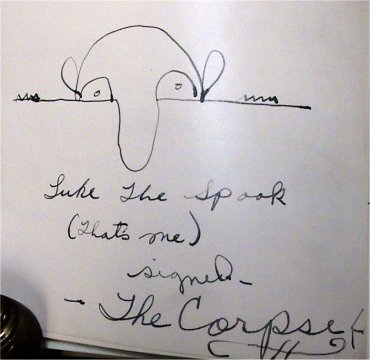 Luke The Spook
(Thats me)
signed -
- The Corpse